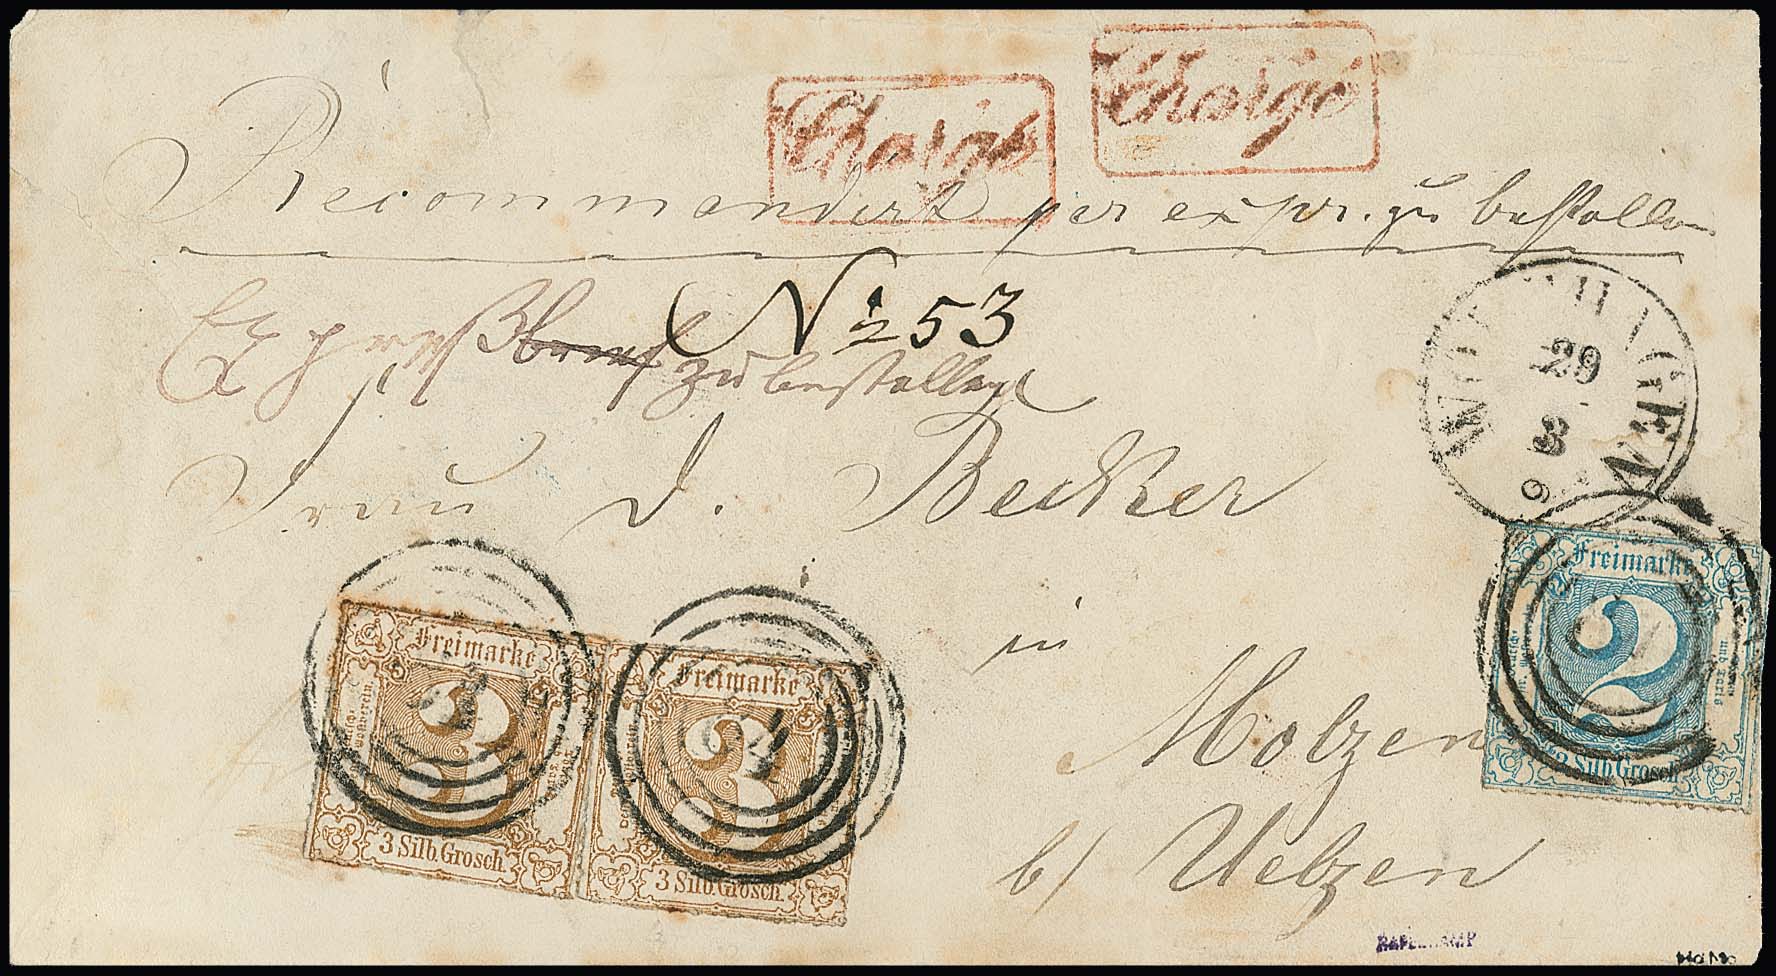 Chargé
Chargé
Recommandirt per expr. zu bestellen
No 253
Expreß zu bestellen
Frau d. Becker
in
Molzen
b/ Uelzen
29
3
Freimarke
3
3 Silb. Grosch.
Freimarke
3
3 Silb. Grosch.
Freimarke
2
2 Silb. Grosch.